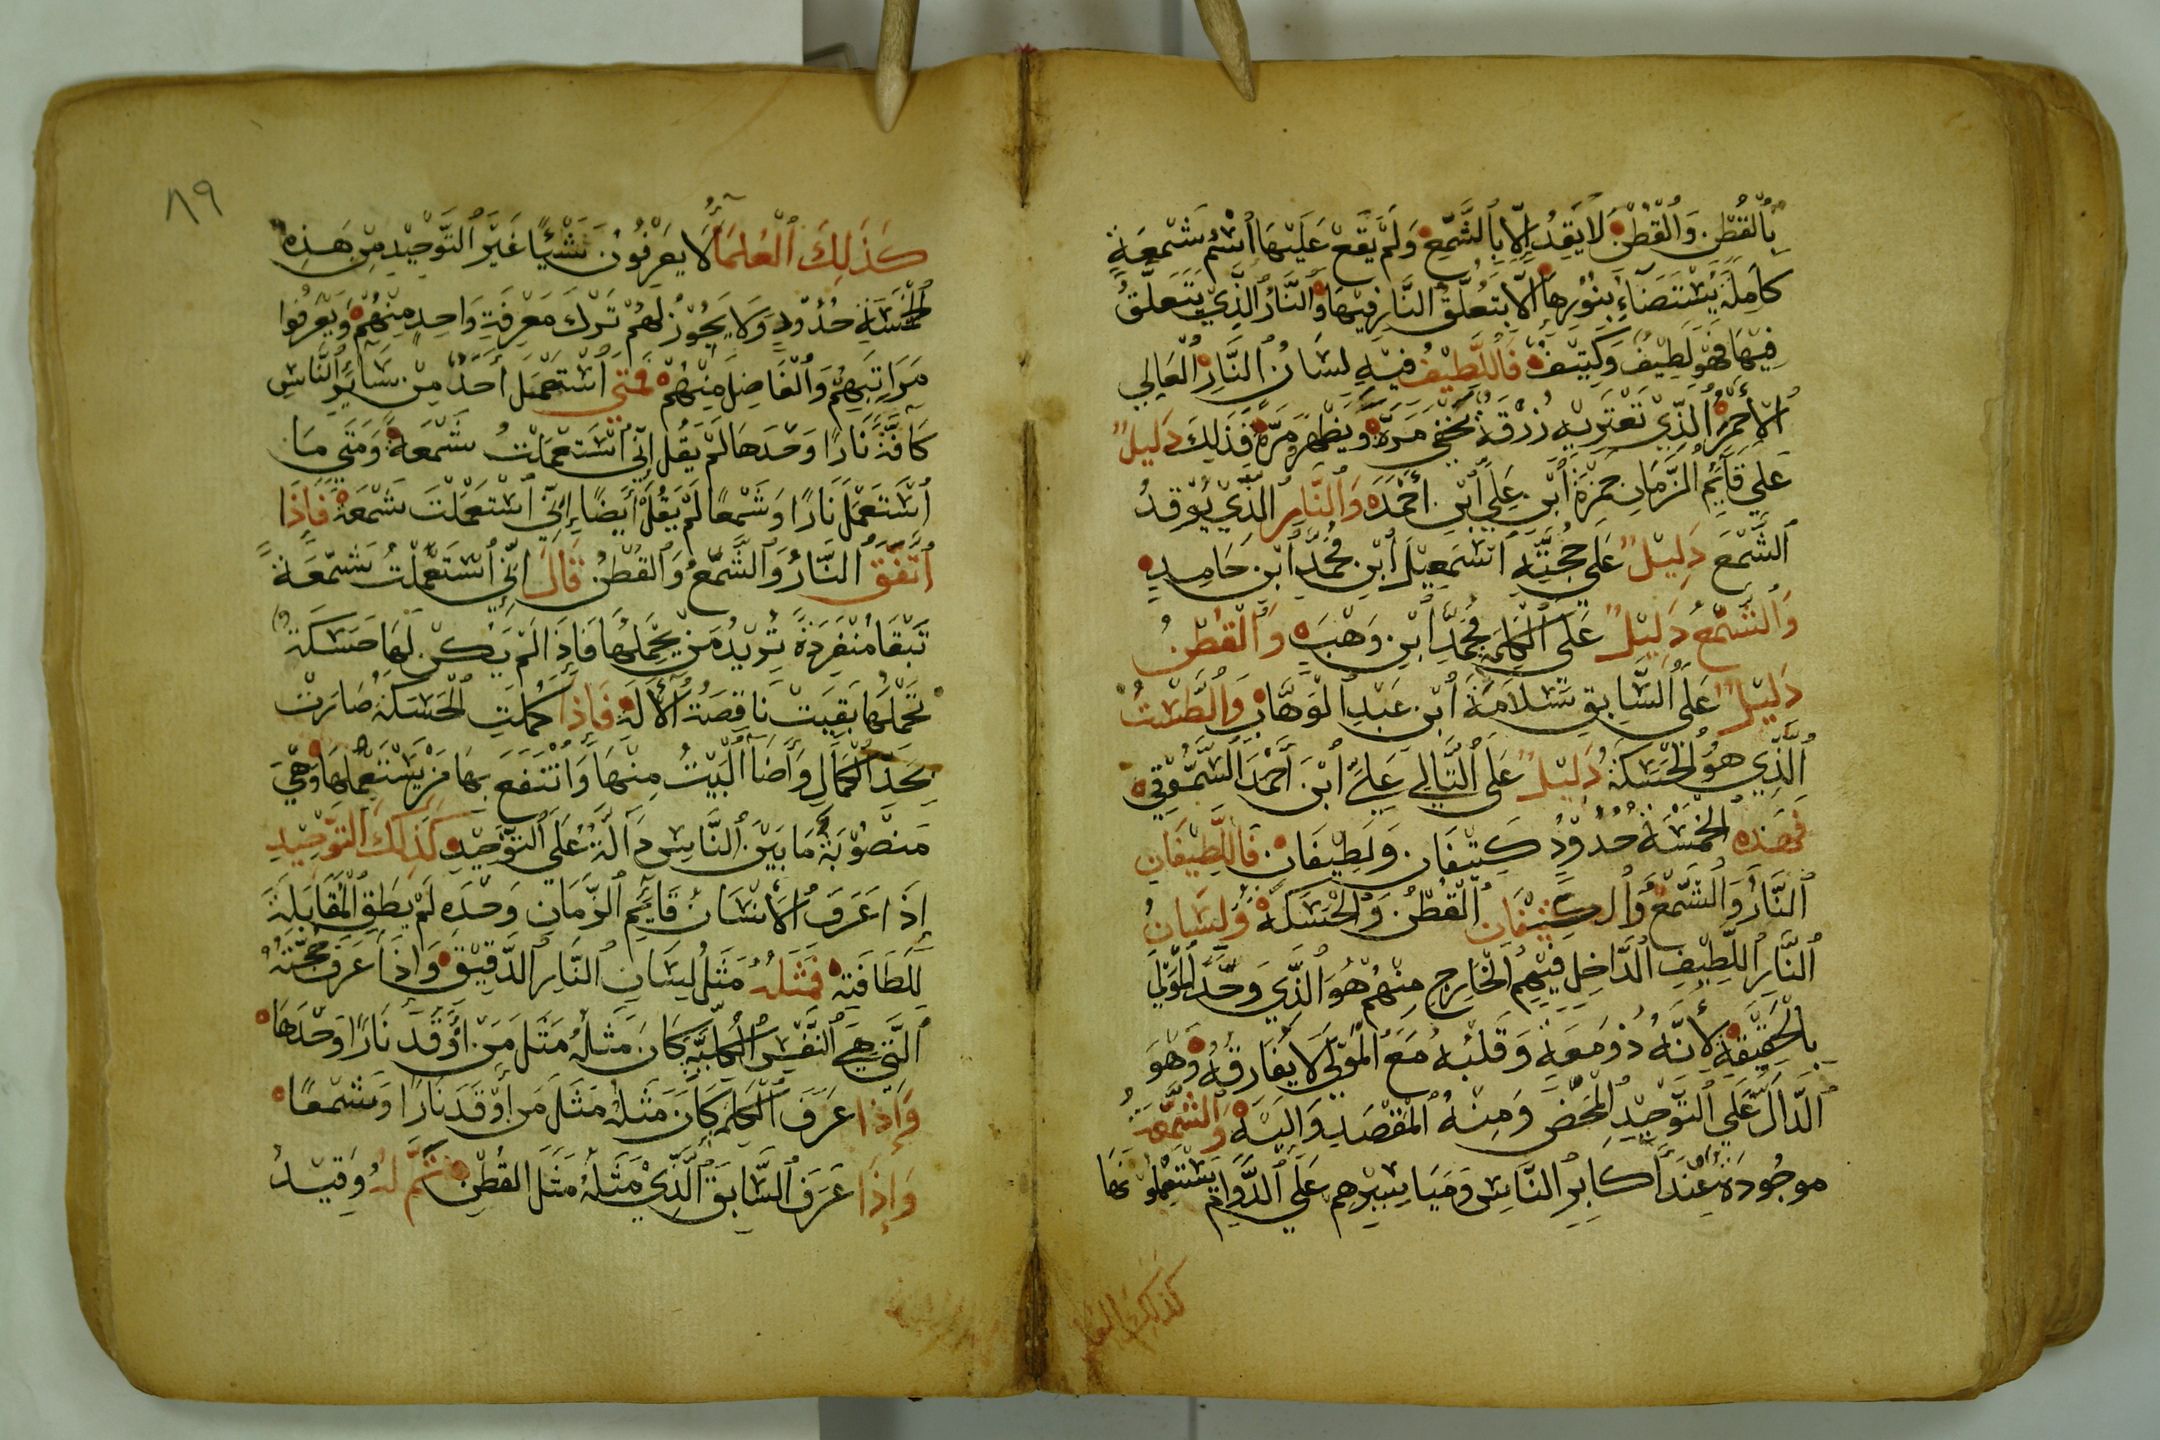 بِالْقُطْنِ وَالْقُطْنُ لَا يَقِدُ إِلَّا بِالشَّمْعِ وَلَمْ يَقَعْ عَلَيْهَا اسْمُ شَمْعَةٍ
كَامِلَةٍ يُسْتَضَاءُ بِنُورِهَا إِلَّا بِتَعَلُّقِ النَّارِ فِيهَا وَالنَّارُ الَّذِي يَتَعَلَّقُ
فِيهَا فَهْوَ لَطِيفٌ وَكَثِيفٌ فَاللَّطِيفُ فِيهِ لِسَانُ النَّارِ الْعَالِي
الْأَحْمَرُ الَّذِي تَعْتَرِيهِ زُرْقَةٌ يَخْفَى مَرَّةً وَيَظْهَرُ مَرَّةً فَذَلِكَ دَلِيلٌ
عَلَى قَائِمِ الزَّمَانِ حَمْزَةَ ابْنِ عَلِي ابْنِ أَحْمَدَ وَالنَّارُ الَّذِي يُوْقِدُ
الشَّمْعَ دَلِيْلٌ عَلَى حُجَّتِهِ اسْمَعِيْلَ ابْنِ مُحَمَّدْ ابْنِ حَامِدٍ
وَالشَّمْعُ دَلِيْلٌ عَلَى الْكَلِمَةِ مُحَمَّدِ ابْنِ وَهْبٍ وَالْقُطْنُ
دَلِيْلٌ عَلَى السَّابِقِ سَلَامَةَ ابْنِ عَبْدِ الْوَهَّابِ وَالطَّسْتُ
الَّذِي هُوَ الْحَسَكَةُ دَلِيْلٌ عَلَى التَّالِي عَلِي ابْنَ أَحْمَدَ السَّمُّوقِي
فَهَذِهِ الْخَمْسَةُ حُدُوْدٍ كَثِيْفَانِ وَلَطِيْفَانِ فَاللَّطِيْفَانِ
النَّارُ وَالشَّمْعُ وَالْكَثِيْفَانِ الْقُطْنُ وَالْحَسَكَةُ وَلِسَانُ
النَّارِ اللَّطِيْفِ الدَّاخِلِ فِيْهِمُ الْخَارِجِ مِنْهُمْ هُوَ الَّذِي وَحَّدَ الْمَوْلَى
بِالْحَقِيْقَةِ لِأَنَّهُ ذُو مَعَةٍ وَقَلْبُهُ مَعَ الْمَوْلَى لَا يُفَارِقُهُ وَهْوَ
الدَّالُ عَلَى التَّوْحِيْدِ الْمَحْضِ وَمِنْهُ الْمَقْصَدِ وَالَيْهِ وَالشَّمْعَةُ
مَوجُودَةٌ عِنْدَ أَكَابِرِ النَّاسِ وَمَيَاسِيْرِهِم عَلَى الدَّوَامِ يَسْتَعْمِلُونَهَا
كذلك العلما
٨٩
كَذَلِكَ الْعُلَمَا لَا يَعْرِفُونَ شَيْئًا غَيْرَ التَّوْحِيْدِ مِنْ هَذِهِ
الْخَمْسَةِ حُدُوْدٍ وَلَا يَجُوْزُ لَهُمْ تَرْكَ مَعْرِفَةِ وَاحِدٍ مِنْهُمْ وَيَعْرِفُوا
مَرَاتِبَهُمْ وَالْفَاضِلَ مِنْهُمْ فَمَتَى اسْتَعْمَلَ أَحَدٌ مِنْ سَايِرِ النَّاسِ
كَافَّةً نَارًا وَحْدَهَا لَمْ يَقُلْ إِنِّي اسْتَعْمَلْتُ شَمْعَةً وَمَتَى مَا
اسْتَعْمَلَ نَارًا وَشَمْعًا لَمْ يَقُلْ أَيْضًا إِنِّي اسْتَعْمَلْتُ شَمْعَةً فَإِذَا
اتَّفَقَ النَّارُ وَالشَّمْعُ وَالْقُطْنُ قَالَ إِنِّي اسْتَعْمَلْتُ شَمْعَةً
تَبْقَا مُنْفَرِدَةً تُرِيْدُ مَنْ يَحْمِلُهَا فَإِذَا لَمْ يَكُنْ لَهَا حَسَكَةٌ
تَحْمِلُهَا بَقِيَتْ نَاقِصَةُ الْآلَةِ فَإِذَا كَمُلَتِ الْحَسَكَةُ صَارَتْ
بِحَدِّ الْكَمَالِ وَأَضَا الْبَيْتُ مِنْهَا وَانْتَفَعَ بِهَا مَنْ يَسْتَعْمِلُهَا وَهِيَ
مَنْصُوْبَةٌ مَا بَيْنَ النَّاسِ دَالَّةٌ عَلَى التَّوْحِيْدِ وَكَذَلِكَ التَّوْحِيْدِ
إِذَا عَرَفَ الْإِنْسَانُ قَايِمَ الزَّمَانِ وَحْدَهِ لَمْ يُطِقِ الْمُقَابَلَةَ
لِلَطَافَتِهِ فَمَثَلُهُ مَثَلُ لِسَانِ النَّارِ الدَّقِيْقِ وَإِذَا عَرَفَ حُجَّتَهُ
الَّتِي هِيَ النَّفْسُ الْكُلِّيَّةِ كَانَ مَثَلُهُ مَثَلَ مَنْ أَوْقَدَ نَارًا وَحْدَهَا
وَإِذَا عَرَفَ الْكَلِمَةَ كَانَ مَثَلُهُ مَثَلَ مَنْ أَوْقَدَ نَارًا وَشَمْعًا
وَإِذَا عَرَفَ السَّابِقَ الَّذِيْ مَثَلُهُ مَثَلَ الْقُطْنِ تَمَّ لَهُ وَقِيْدُ